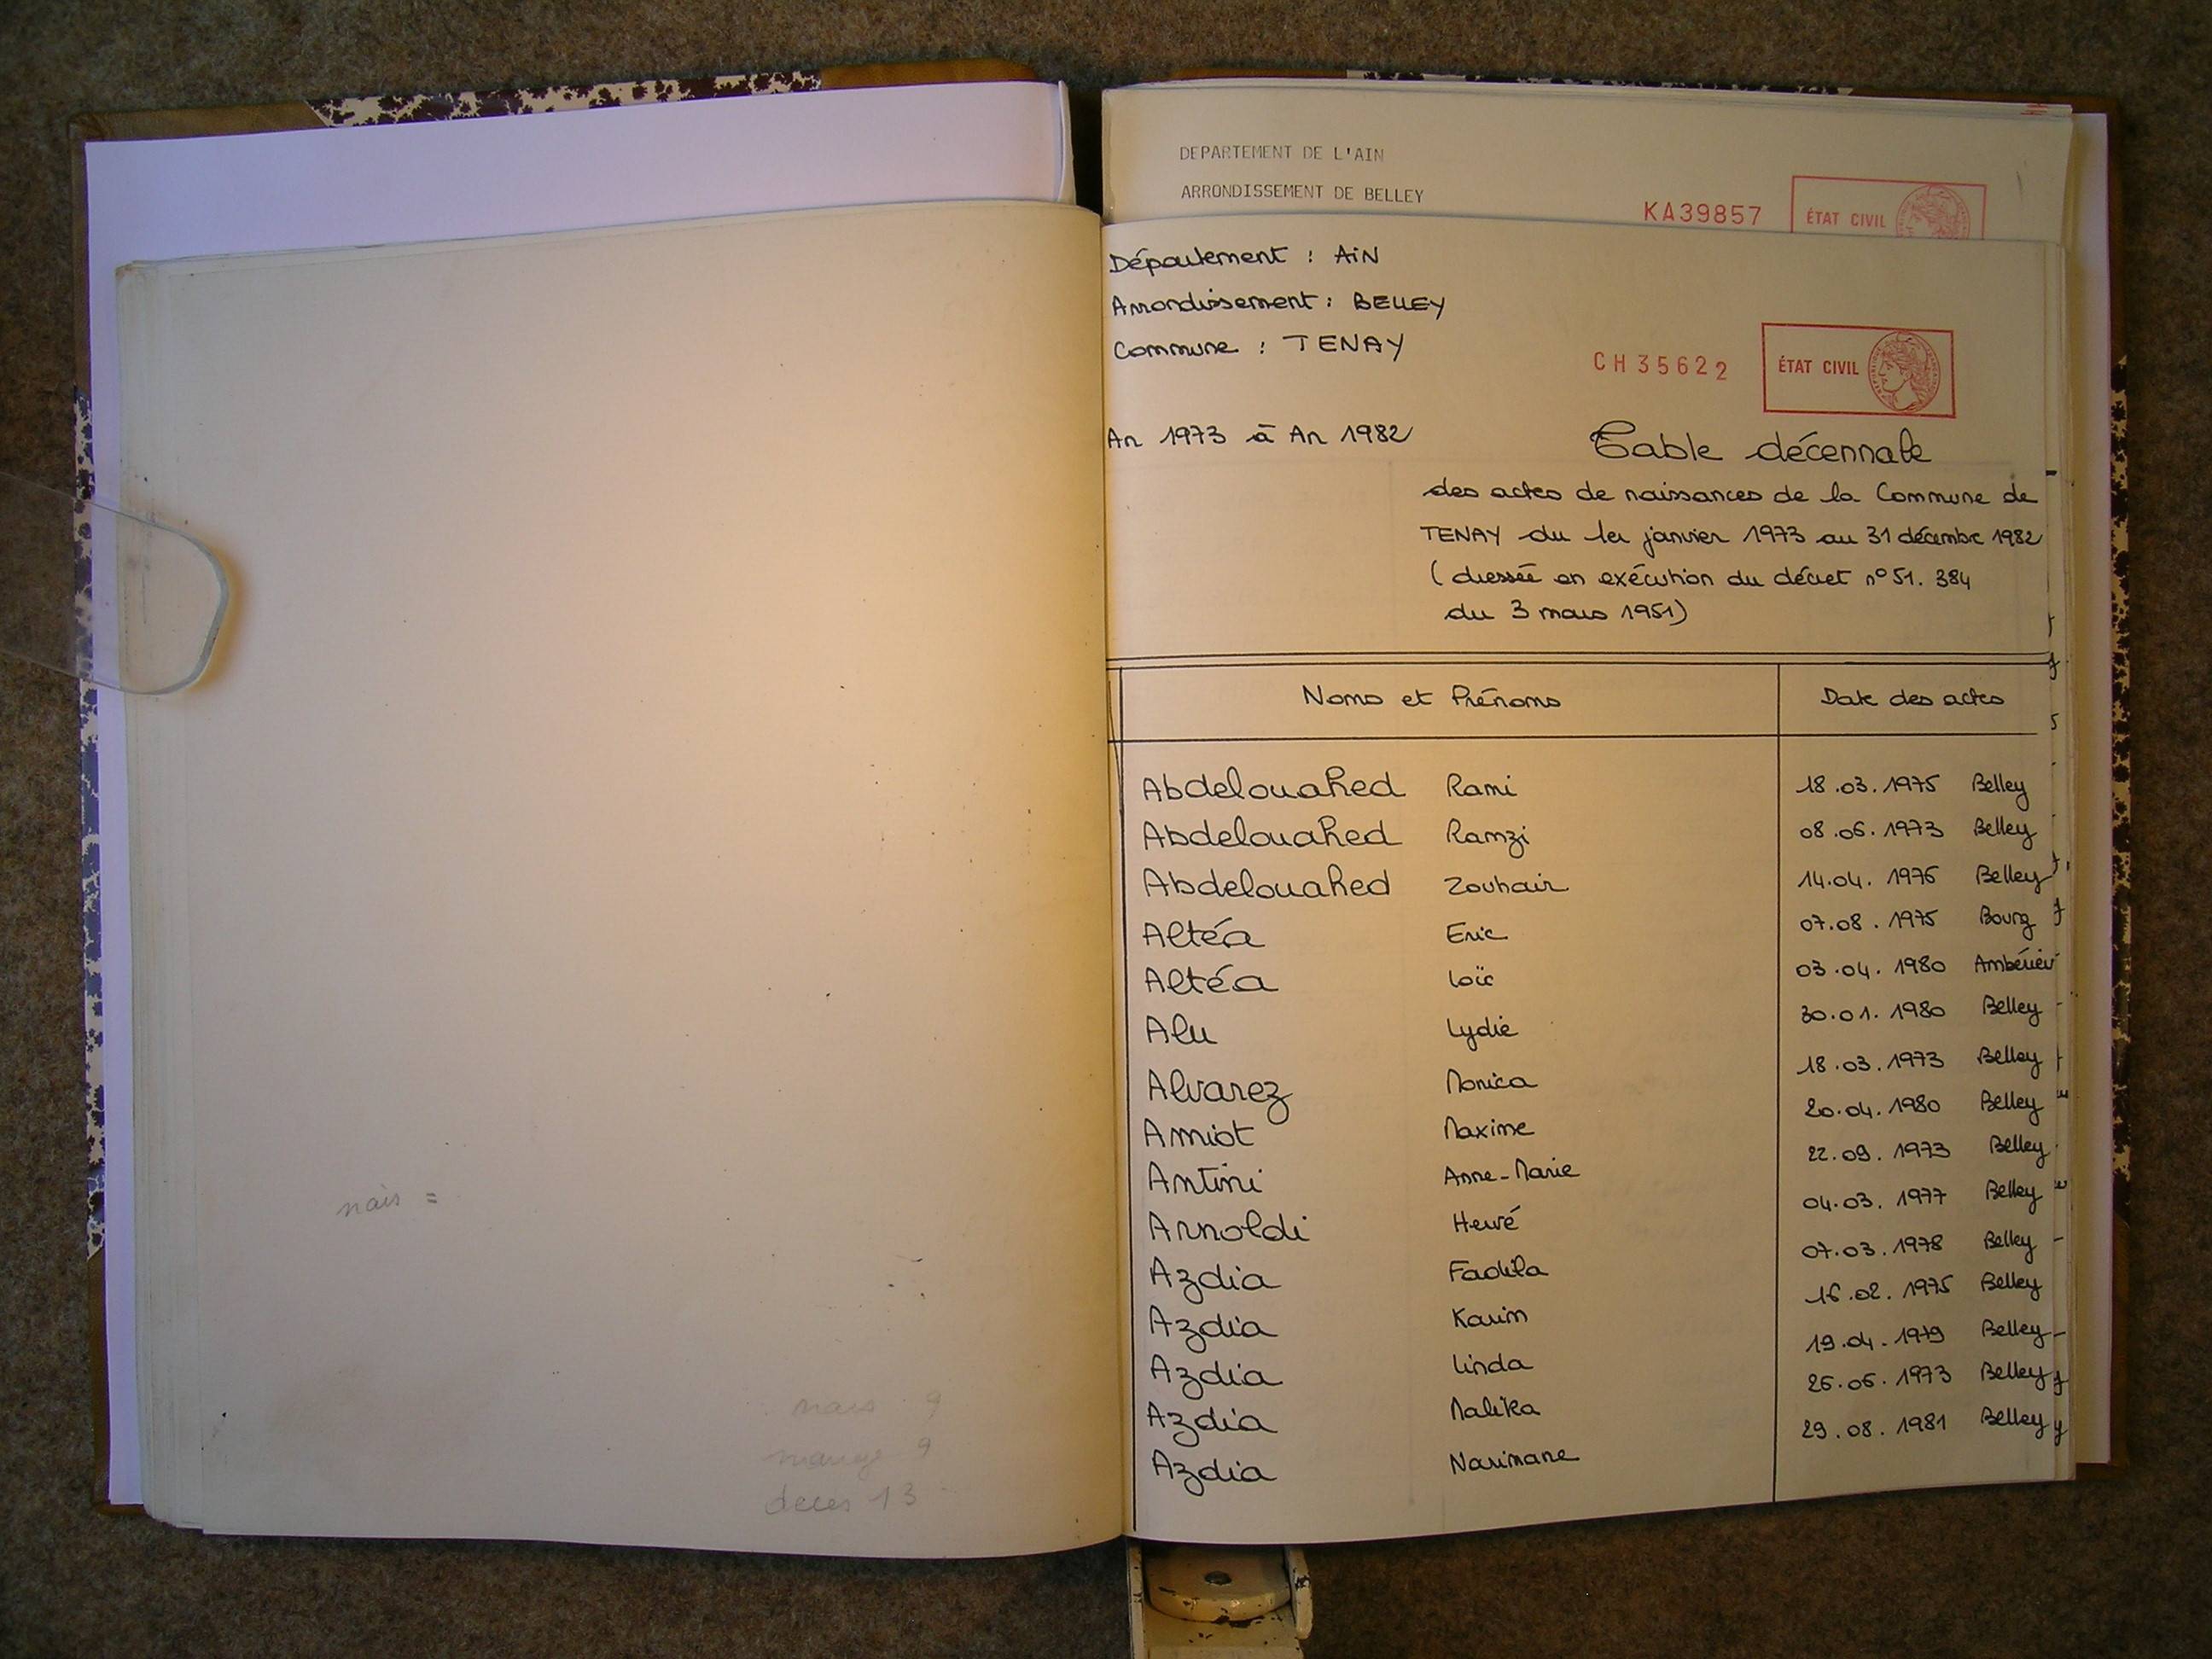 nais =
nais 9
mariage 9
deces 13
DEPARTEMENT DE L'AIN
ARRONDISSEMENT DE BELLEY
KA39857 ÉTAT CIVIL
Département : AiN
Arrondissement : BELLEY
Commune : TENAY
CH35622 ÉTAT CIVIL
An 1973 à An 1982
Table décennale
des actes de naissances de la Commune de
TENAY du 1er janvier 1973 au 31 décembre 1982
(dressée en exécution du décret n° 51. 384
du 3 mars 1951)
Noms et Prénoms Date des actes
Abdelouahed Rami 18.03.1975 Belley
Abdelouahed Ramzi 08.06.1973 Belley
Abdelouahed Zouhair 14.04.1976 Belley
Altéa Eric 07.08.1975 Bourg
Altéa Loïc 03.04.1980 Ambérieu
Alu Lydie 30.01.1980 Belley
Alvarez Monica 18.03.1973 Belley
Amiot Maxime 20.04.1980 Belley
Antini Anne-Marie 22.09.1973 Belley
Arnoldi Hervé 04.03.1977 Belley
Azdia Fadila 07.03.1978 Belley
Azdia Karim 16.02.1975 Belley
Azdia Linda 19.04.1979 Belley
Azdia Malika 26.06.1973 Belley
Azdia Narimane 29.08.1981 Belley